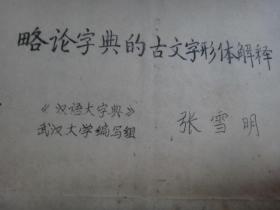 略论字典的古文字形体解释
《汉语大字典》
武汉大学编写组
张雪明